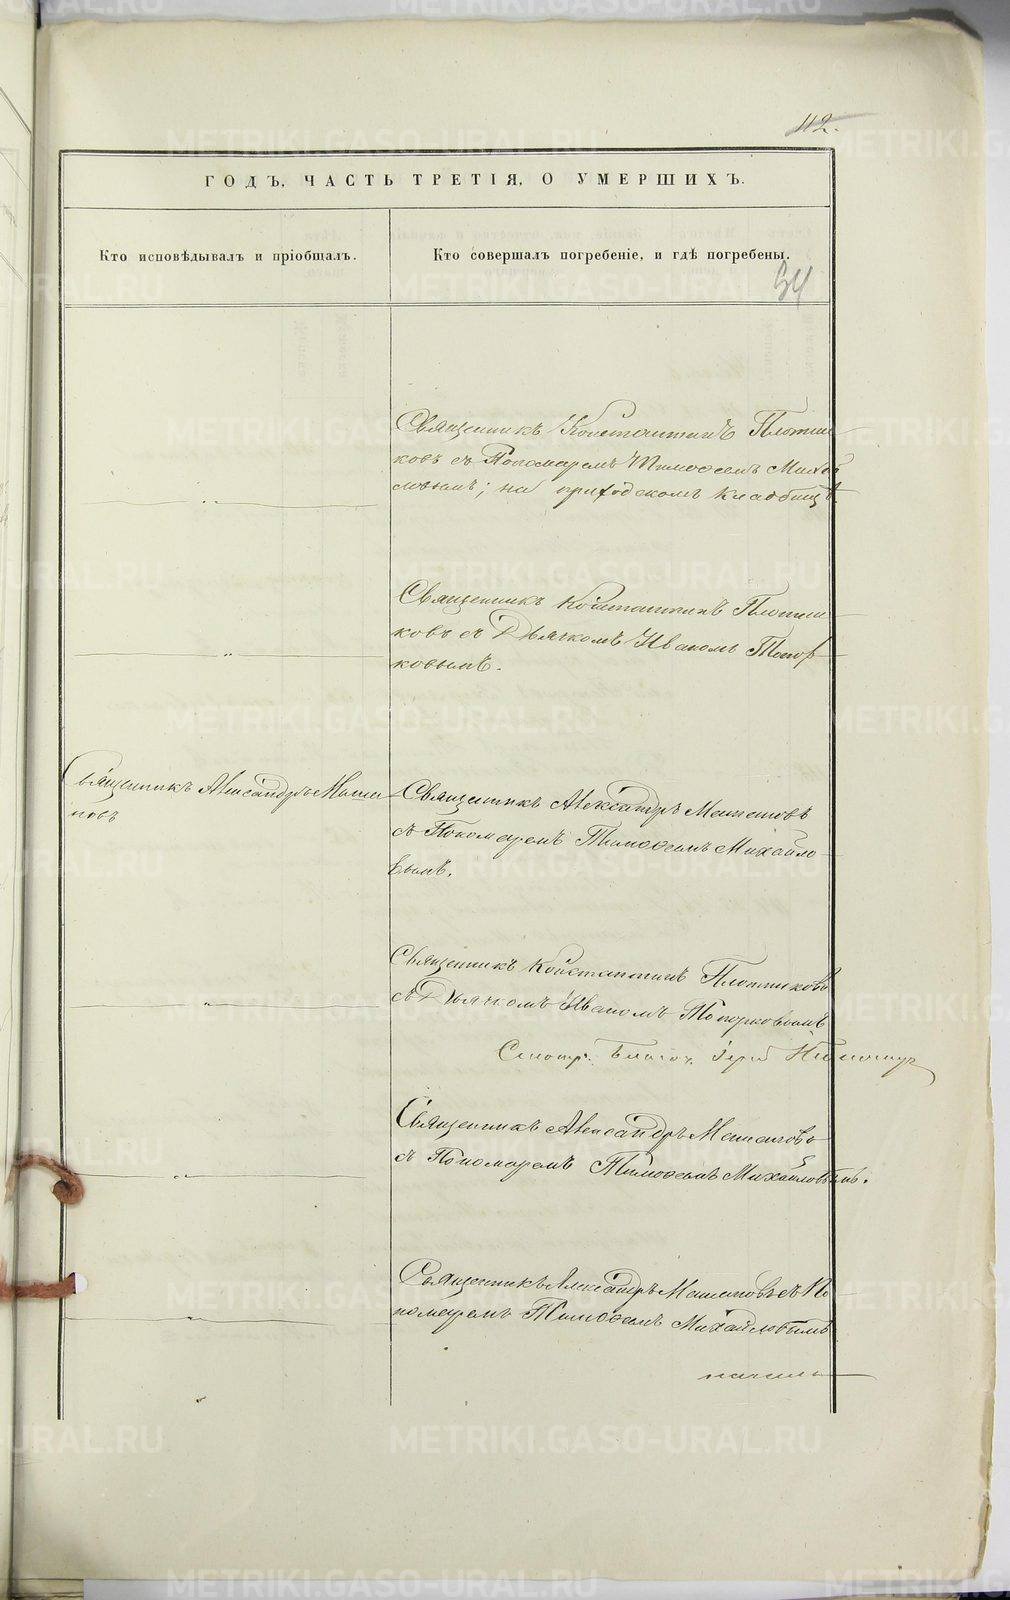 112.
ГОДЪ, ЧАСТЬ ТРЕТІЯ, О УМЕРШИХЪ.
Кто исповѣдывалъ и пріобщалъ.
Кто совершалъ погребеніе, и гдѣ погребены.
34
Священникъ Константинъ Плотни
ковъ съ Пономаремъ Тимоѳеемъ Михай
ловымъ; на приходскомъ кладбищѣ
Священникъ Константинъ Плотни
ковъ съ Дьячкомъ Иваномъ Топор
ковымъ.
Священникъ Александръ
новъ
Священникъ Александръ
съ Пономаремъ Тимоѳеемъ Михайло
вымъ.
Священникъ Константинъ Плотниковъ
съ Дьячкомъ Иваномъ Топорковымъ
Священникъ Александръ
съ Пономаремъ Тимоѳеемъ Михайловымъ.
Священникъ Александръ съ По
номаремъ Тимоѳеемъ Михайловымъ
METRIKI.GASO-URAL.RU